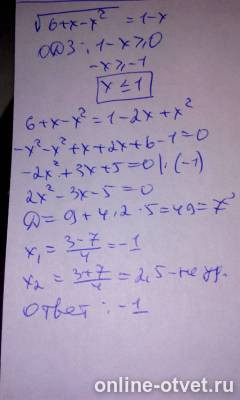 √(6+x-x²) = 1-x
ОДЗ: 1-x≥0
-x≥-1
x≤1
6+x-x²=1-2x+x²
-x²-x²+x+2x+6-1=0
-2x²+3x+5=0|·(-1)
2x²-3x-5=0
D=9+4·2·5=49=7²
x₁=(3-7)/4=-1
x₂=(3+7)/4=2,5-не уд.
Ответ: -1
online-otvet.ru